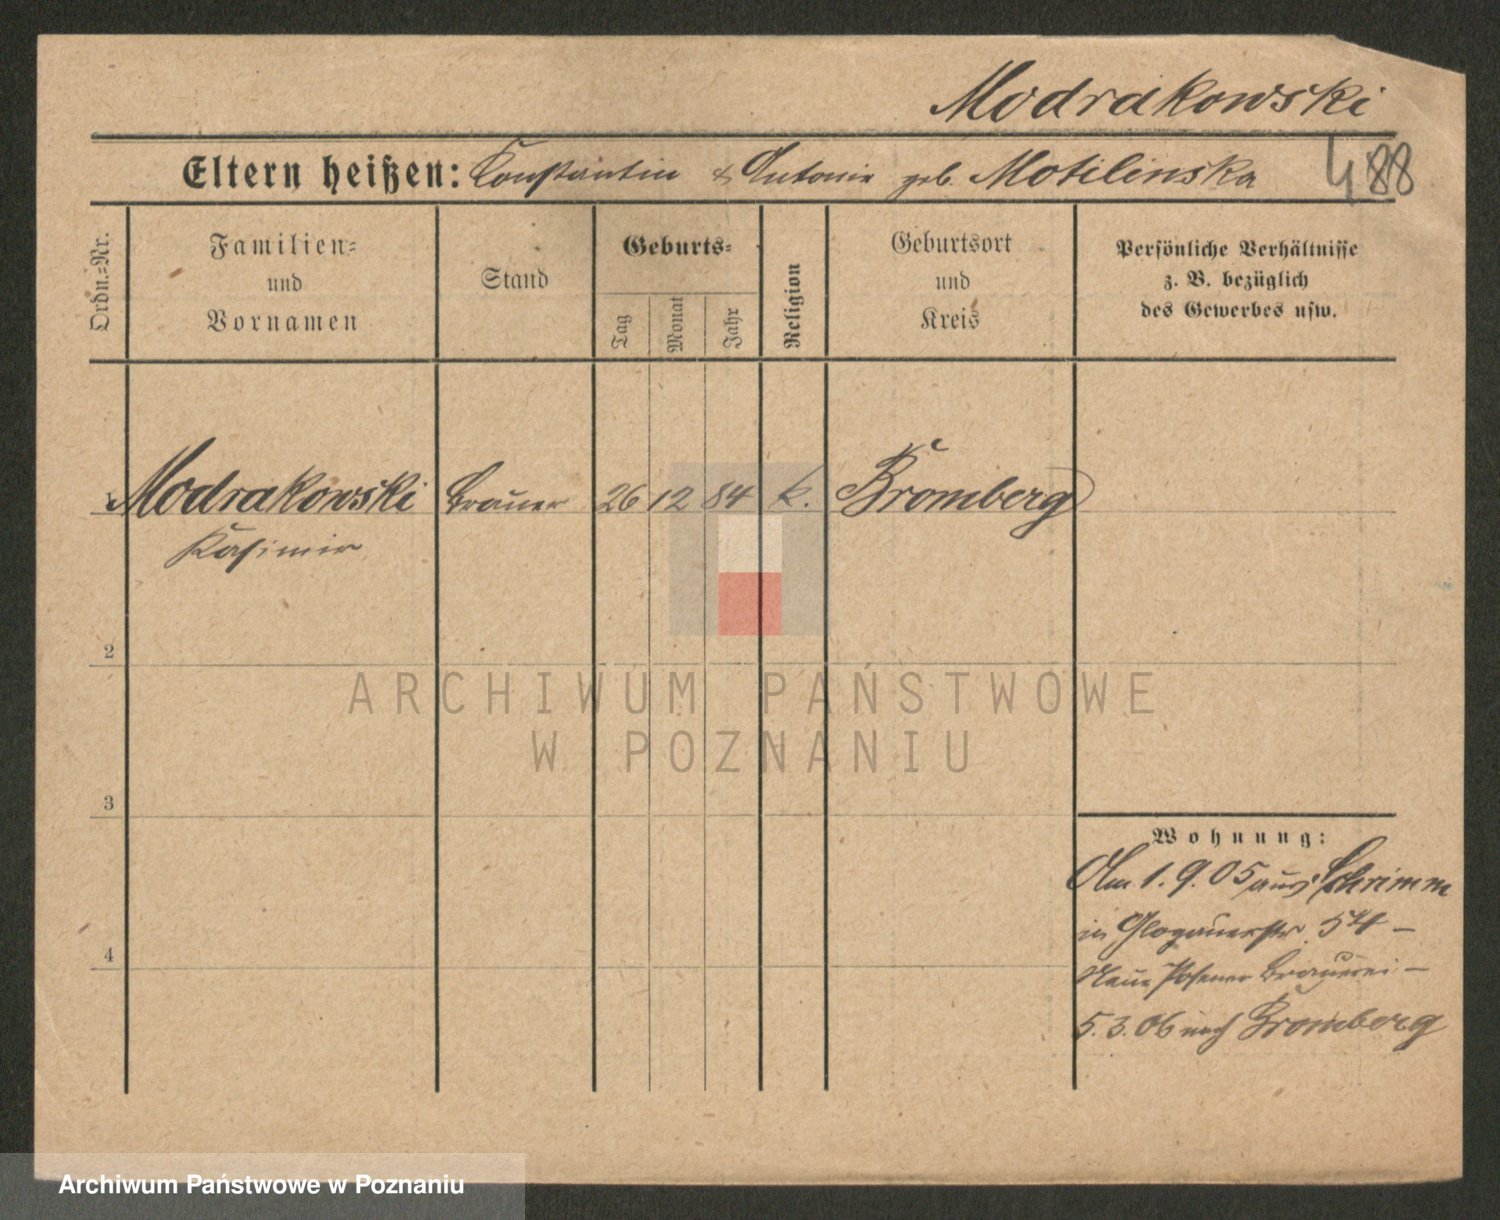 Modrakowski
Eltern heißen: Konstantin & Antonie geb. Motilinska
488
Ordn.=Nr.
Familien=
und
Vornamen
Stand
Geburts=
Tag
Monat
Jahr
Religion
Geburtsort
und
Kreis
Persönliche Verhältnisse
z. B. bezüglich
des Gewerbes usw.
1 Modrakowski Brauer 26 12 84 k. Bromberg
Kasimir
2
3
4
Wohnung:
Am 1.9.05 aus Schrimm
in Glogauerstr. 54 –
Neue Posener Brauerei –
5.3.06 nach Bromberg
ARCHIWUM PAŃSTWOWE
W POZNANIU
Archiwum Państwowe w Poznaniu